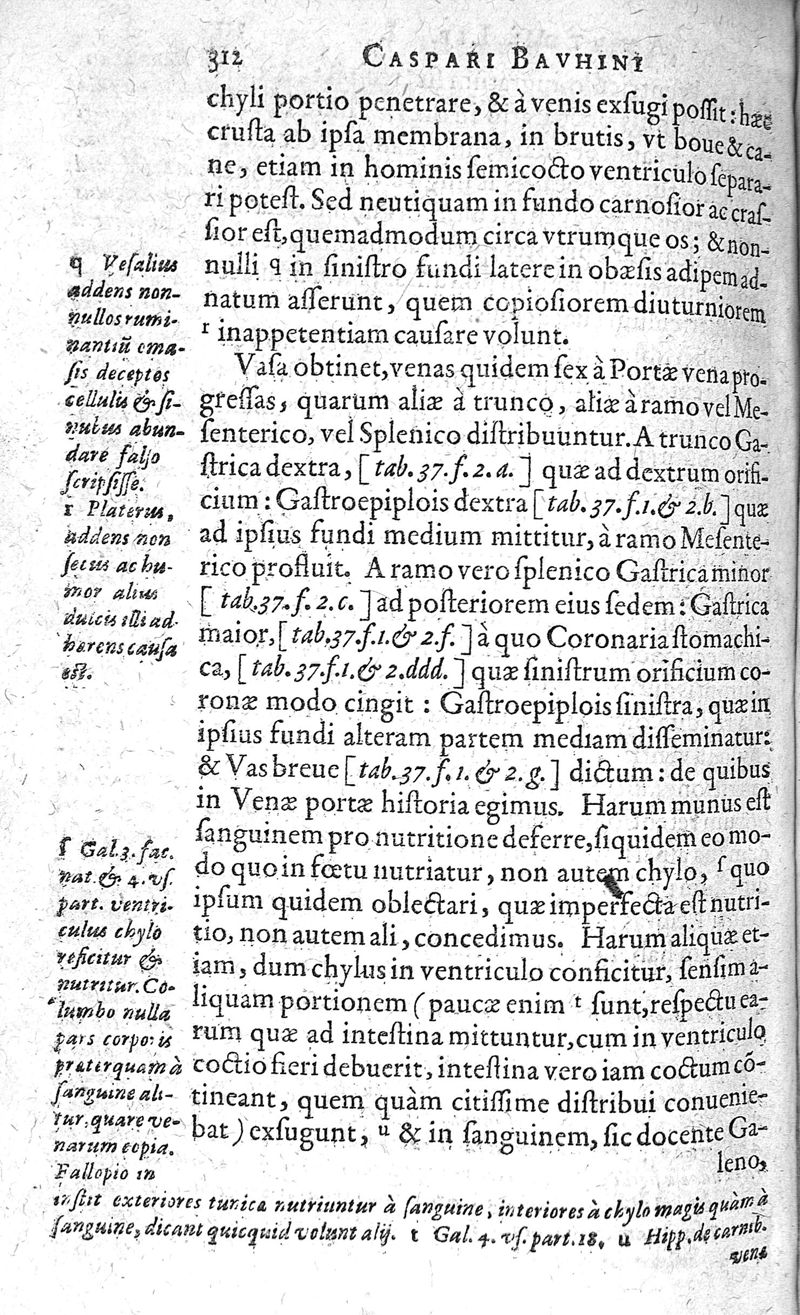 312 CASPARI BAVHINI
chyli portio penetrare, & à venis exſugi poſſit: hæc
cruſta ab ipſa membrana, in brutis, vt boue & ca-
ne, etiam in hominis ſemicocto ventriculo ſepara-
ri poteſt. Sed neutiquam in fundo carnoſior ac craſ-
ſior eſt, quemadmodum circa vtrumque os; & non-
nulli q in ſiniſtro fundi latere in obæſis adipem ad-
natum aſſerunt, quem copioſiorem diuturniorem
r inappetentiam cauſare volunt.
Vaſa obtinet, venas quidem ſex à Portæ vena pro-
greſſas, quarum aliæ à trunco, aliæ à ramo vel Me-
ſenterico, vel Splenico diſtribuuntur. A trunco Ga-
ſtrica dextra, [tab. 37. f. 2. a.] quæ ad dextrum orifi-
cium: Gaſtroepiplois dextra [tab. 37. f. 1. & 2. b.] quæ
ad ipſius fundi medium mittitur, à ramo Meſente-
rico profluit. A ramo vero ſplenico Gaſtrica minor
[tab. 37. f. 2. c.] ad poſteriorem eius ſedem: Gaſtrica
maior, [tab. 37. f. 1. & 2. f.] à quo Coronaria ſtomachi-
ca, [tab. 37. f. 1. & 2. ddd.] quæ ſiniſtrum orificium co-
ronæ modo cingit: Gaſtroepiplois ſiniſtra, quæ in
ipſius fundi alteram partem mediam diſſeminatur:
& Vas breue [tab. 37. f. 1. & 2. g.] dictum: de quibus
in Venæ portæ hiſtoria egimus. Harum munus eſt
ſanguinem pro nutritione deferre, ſiquidem eo mo-
do quo in fœtu nutriatur, non autem chylo, ſ quo
ipſum quidem oblectari, quæ imperfecta eſt nutri-
tio, non autem ali, concedimus. Harum aliquæ et-
iam, dum chylus in ventriculo conficitur, ſenſim a-
liquam portionem (paucæ enim t ſunt, reſpectu ea-
rum quæ ad inteſtina mittuntur, cum in ventriculo
coctio fieri debuerit, inteſtina vero iam coctum cō-
tineant, quem quàm citiſſime diſtribui conuenie-
bat) exſugunt, u & in ſanguinem, ſic docente Ga-
leno,
q Veſalius
addens non-
nullos rumi-
nantiū oma-
ſis deceptos
cellulis & ſi-
nubus abun-
dare falſo
ſcripſiſſe.
r Platerus,
addens non
ſecus ac hu-
mor alius
dulcis illi ad-
hærens cauſa
eſt.
ſ Gal. 3. fac.
nat. & 4. vſ.
part. ventri-
culus chylo
reficitur &
nutritur. Co-
lumbo nulla
pars corporis
præterquam à
ſanguine ali-
tur, quare ve-
narum copia.
Fallopio in
inſtit exteriores tunicæ nutriuntur à ſanguine, interiores à chylo magis quàm à
ſanguine, dicant quicquid volunt alij. t Gal. 4. vſ. part. 18. u Hipp. de carnib.
venæ